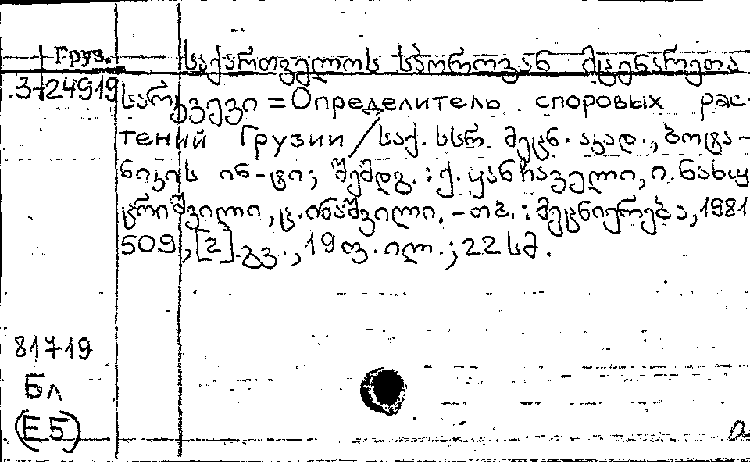 Груз.
საქართველოს სპოროვან მცენარეთა
3-24919
სარკვევი = Определитель споровых рас
тений Грузии / საქ. სსრ. მეცნ. აკად., ბოტა-
ნიკის ინ-ტი; შემდგ.: ქ. ყანჩაველი, ი. ნახუ
ცრიშვილი, ც. ინაშვილი. - თბ.: მეცნიერება, 1981
509, [2] გვ., 19 ფ. ილ.; 22 სმ.
81719
Бл
(Е5)
а